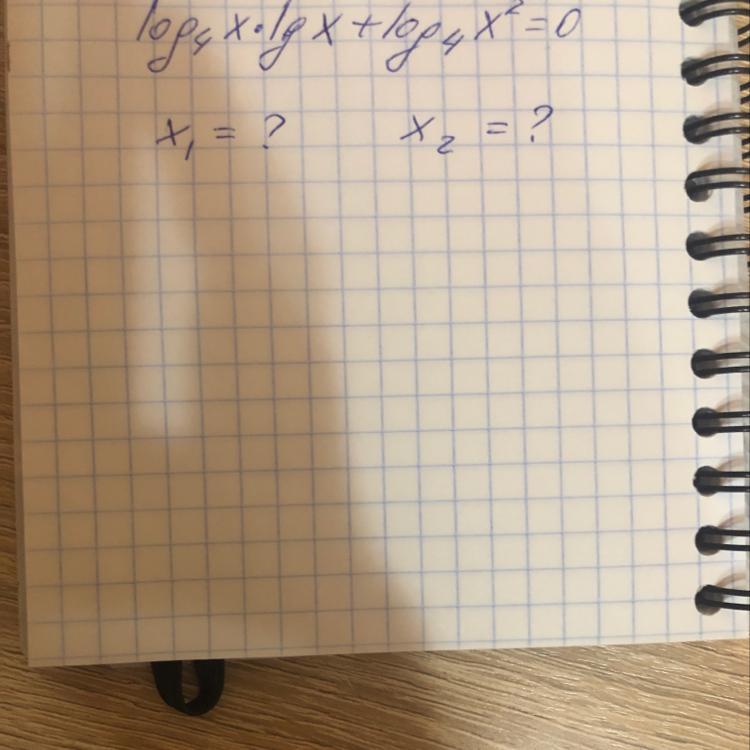 log₄ x · lg x + log₄ x² = 0
x₁ = ? x₂ = ?